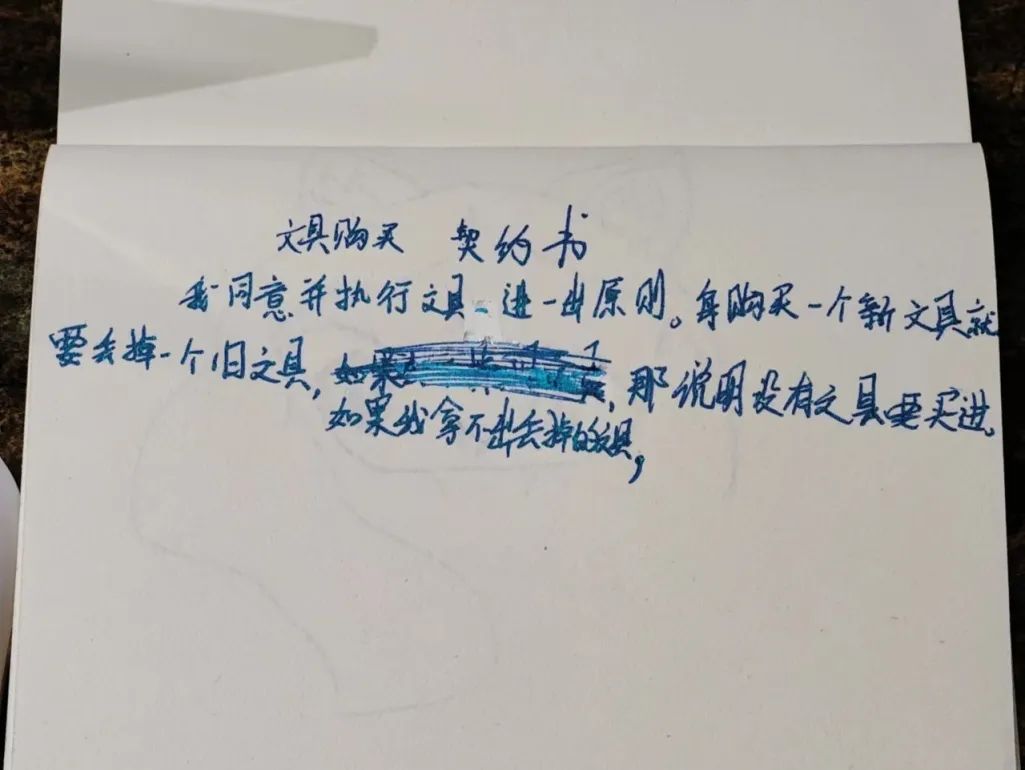 文具购买 契约书
我同意并执行文具一进一出原则。每购买一个新文具就
要去掉一个旧文具,如果,那说明没有文具要买进。
如果我拿不出去掉的文具,